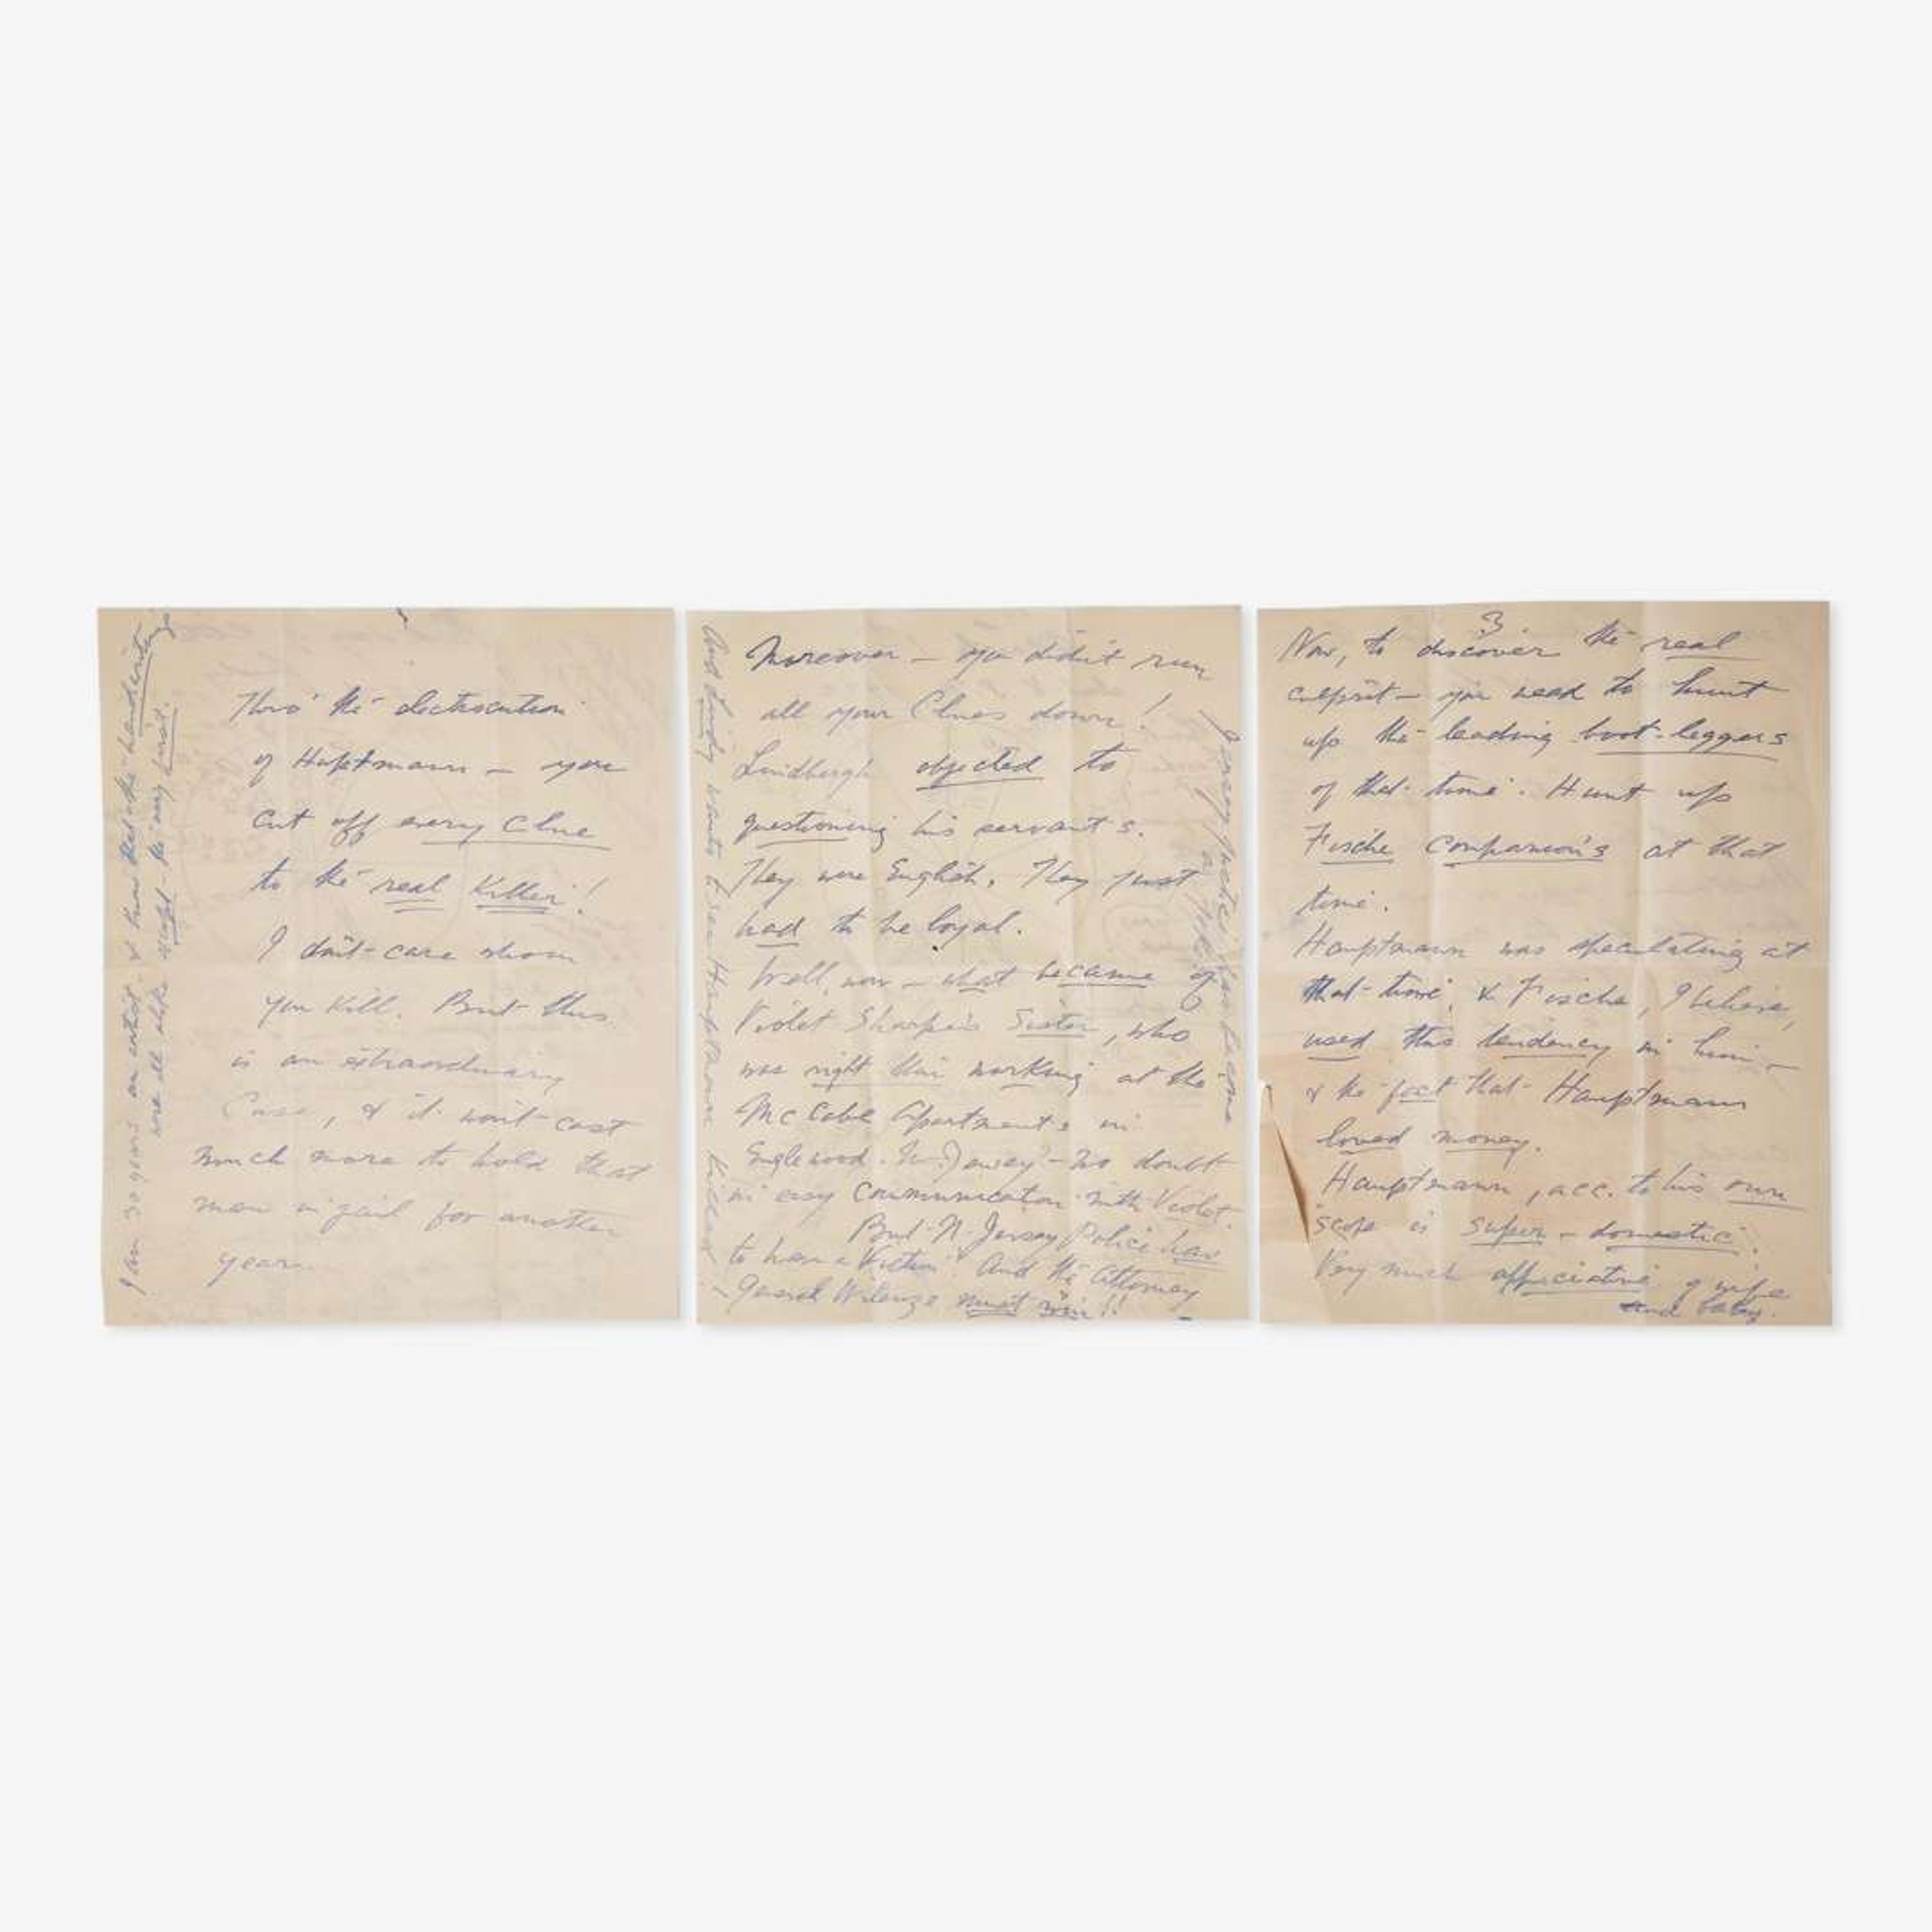 Thro' the electrocution
of Hauptmann — you
cut off every clue
to the real Killer!
I don't care whom
you kill. But this
is an extraordinary
Case, & it won't cost
much more to hold that
man in jail for another
year.
I am 30 years an artist & know that the handwritings
were all alike the very first.
Moreover — you didn't run
all your Clues down!
Lindbergh objected to
questioning his servants.
They were English. They just
had to be loyal.
Well, now — what became of
Violet Sharpe's Sister, who
was right then working at the
McCabe Apartments in
Englewood. N. Jersey — no doubt
in easy communication with Violet.
But N. Jersey Police have
to have a Victim. And the Attorney
General Wilenze must win!!
And Lindy wants to see Hauptmann Killed!
Jersey justice has become
a joke.
3
Now, to discover the real
culprit — you need to hunt
up the leading boot-leggers
of that time. Hunt up
Fische Companions at that
time.
Hauptmann was speculating at
that time, & Fische, I believe,
used this tendency in him —
& the fact that Hauptmann
loved money.
Hauptmann, acc. to his own
scope is super-domestic.
Very much appreciative of wife
and baby.